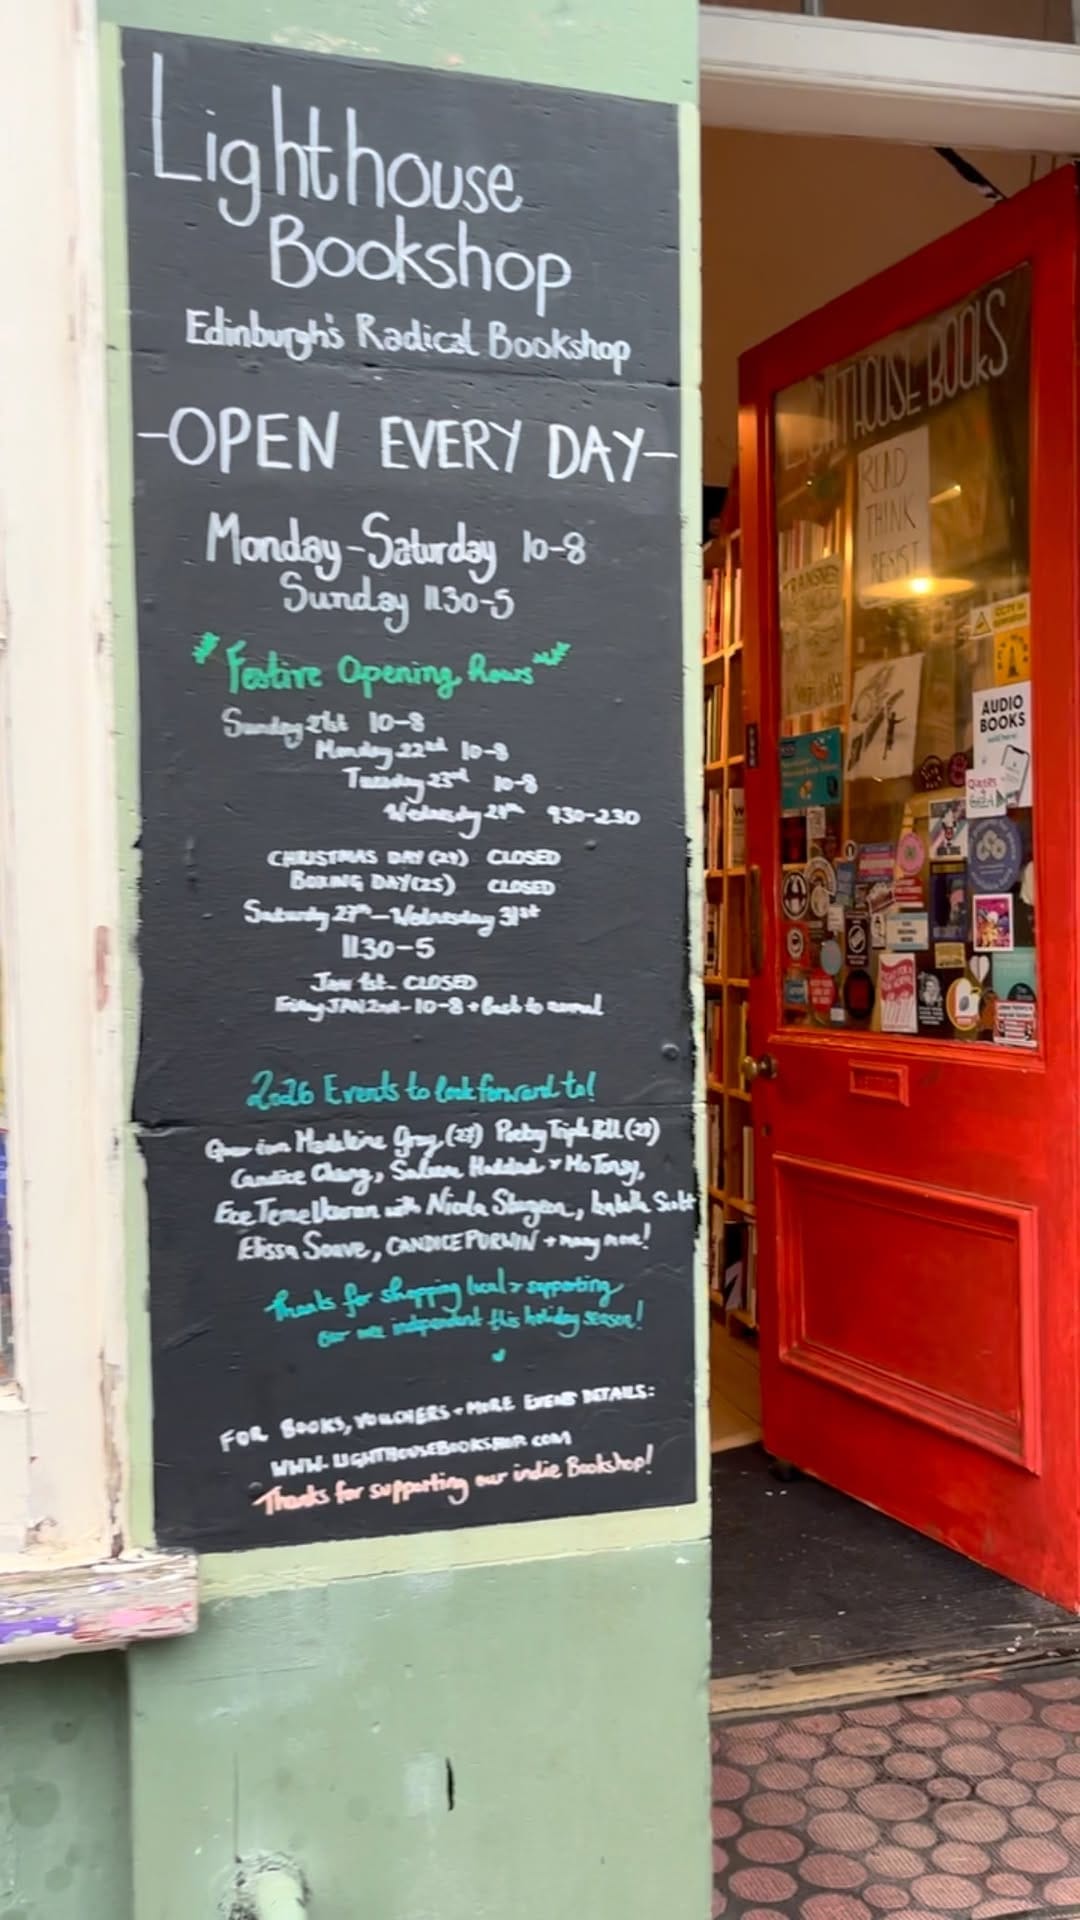 Lighthouse
Bookshop
Edinburgh's Radical Bookshop
-OPEN EVERY DAY-
Monday-Saturday 10-8
Sunday 11.30-5
Festive Opening Hours
Sunday 21st 10-8
Monday 22nd 10-8
Tuesday 23rd 10-8
Wednesday 24th 930-230
CHRISTMAS DAY CLOSED
BOXING DAY (25) CLOSED
Saturday 27th - Wednesday 31st
11.30-5
Jan 1st - CLOSED
Friday JAN 2nd - 10-8 + back to normal
2026 Events to look forward to!
Madeleine Gray Poetry Triple Bill
Candice Chung, Saleem Haddad + Mo Tonsy,
Ece Temelkuran with Nicola Sturgeon, Isabella
Elissa Soave, CANDICE PURWIN + many more!
Thanks for shopping local + supporting
our independent this holiday season!
FOR BOOKS, VOUCHERS + MORE EVENT DETAILS:
WWW.LIGHTHOUSEBOOKSHOP.COM
Thanks for supporting our indie Bookshop!
LIGHTHOUSE BOOKS
READ
THINK
RESIST
CCTV
AUDIO
BOOKS